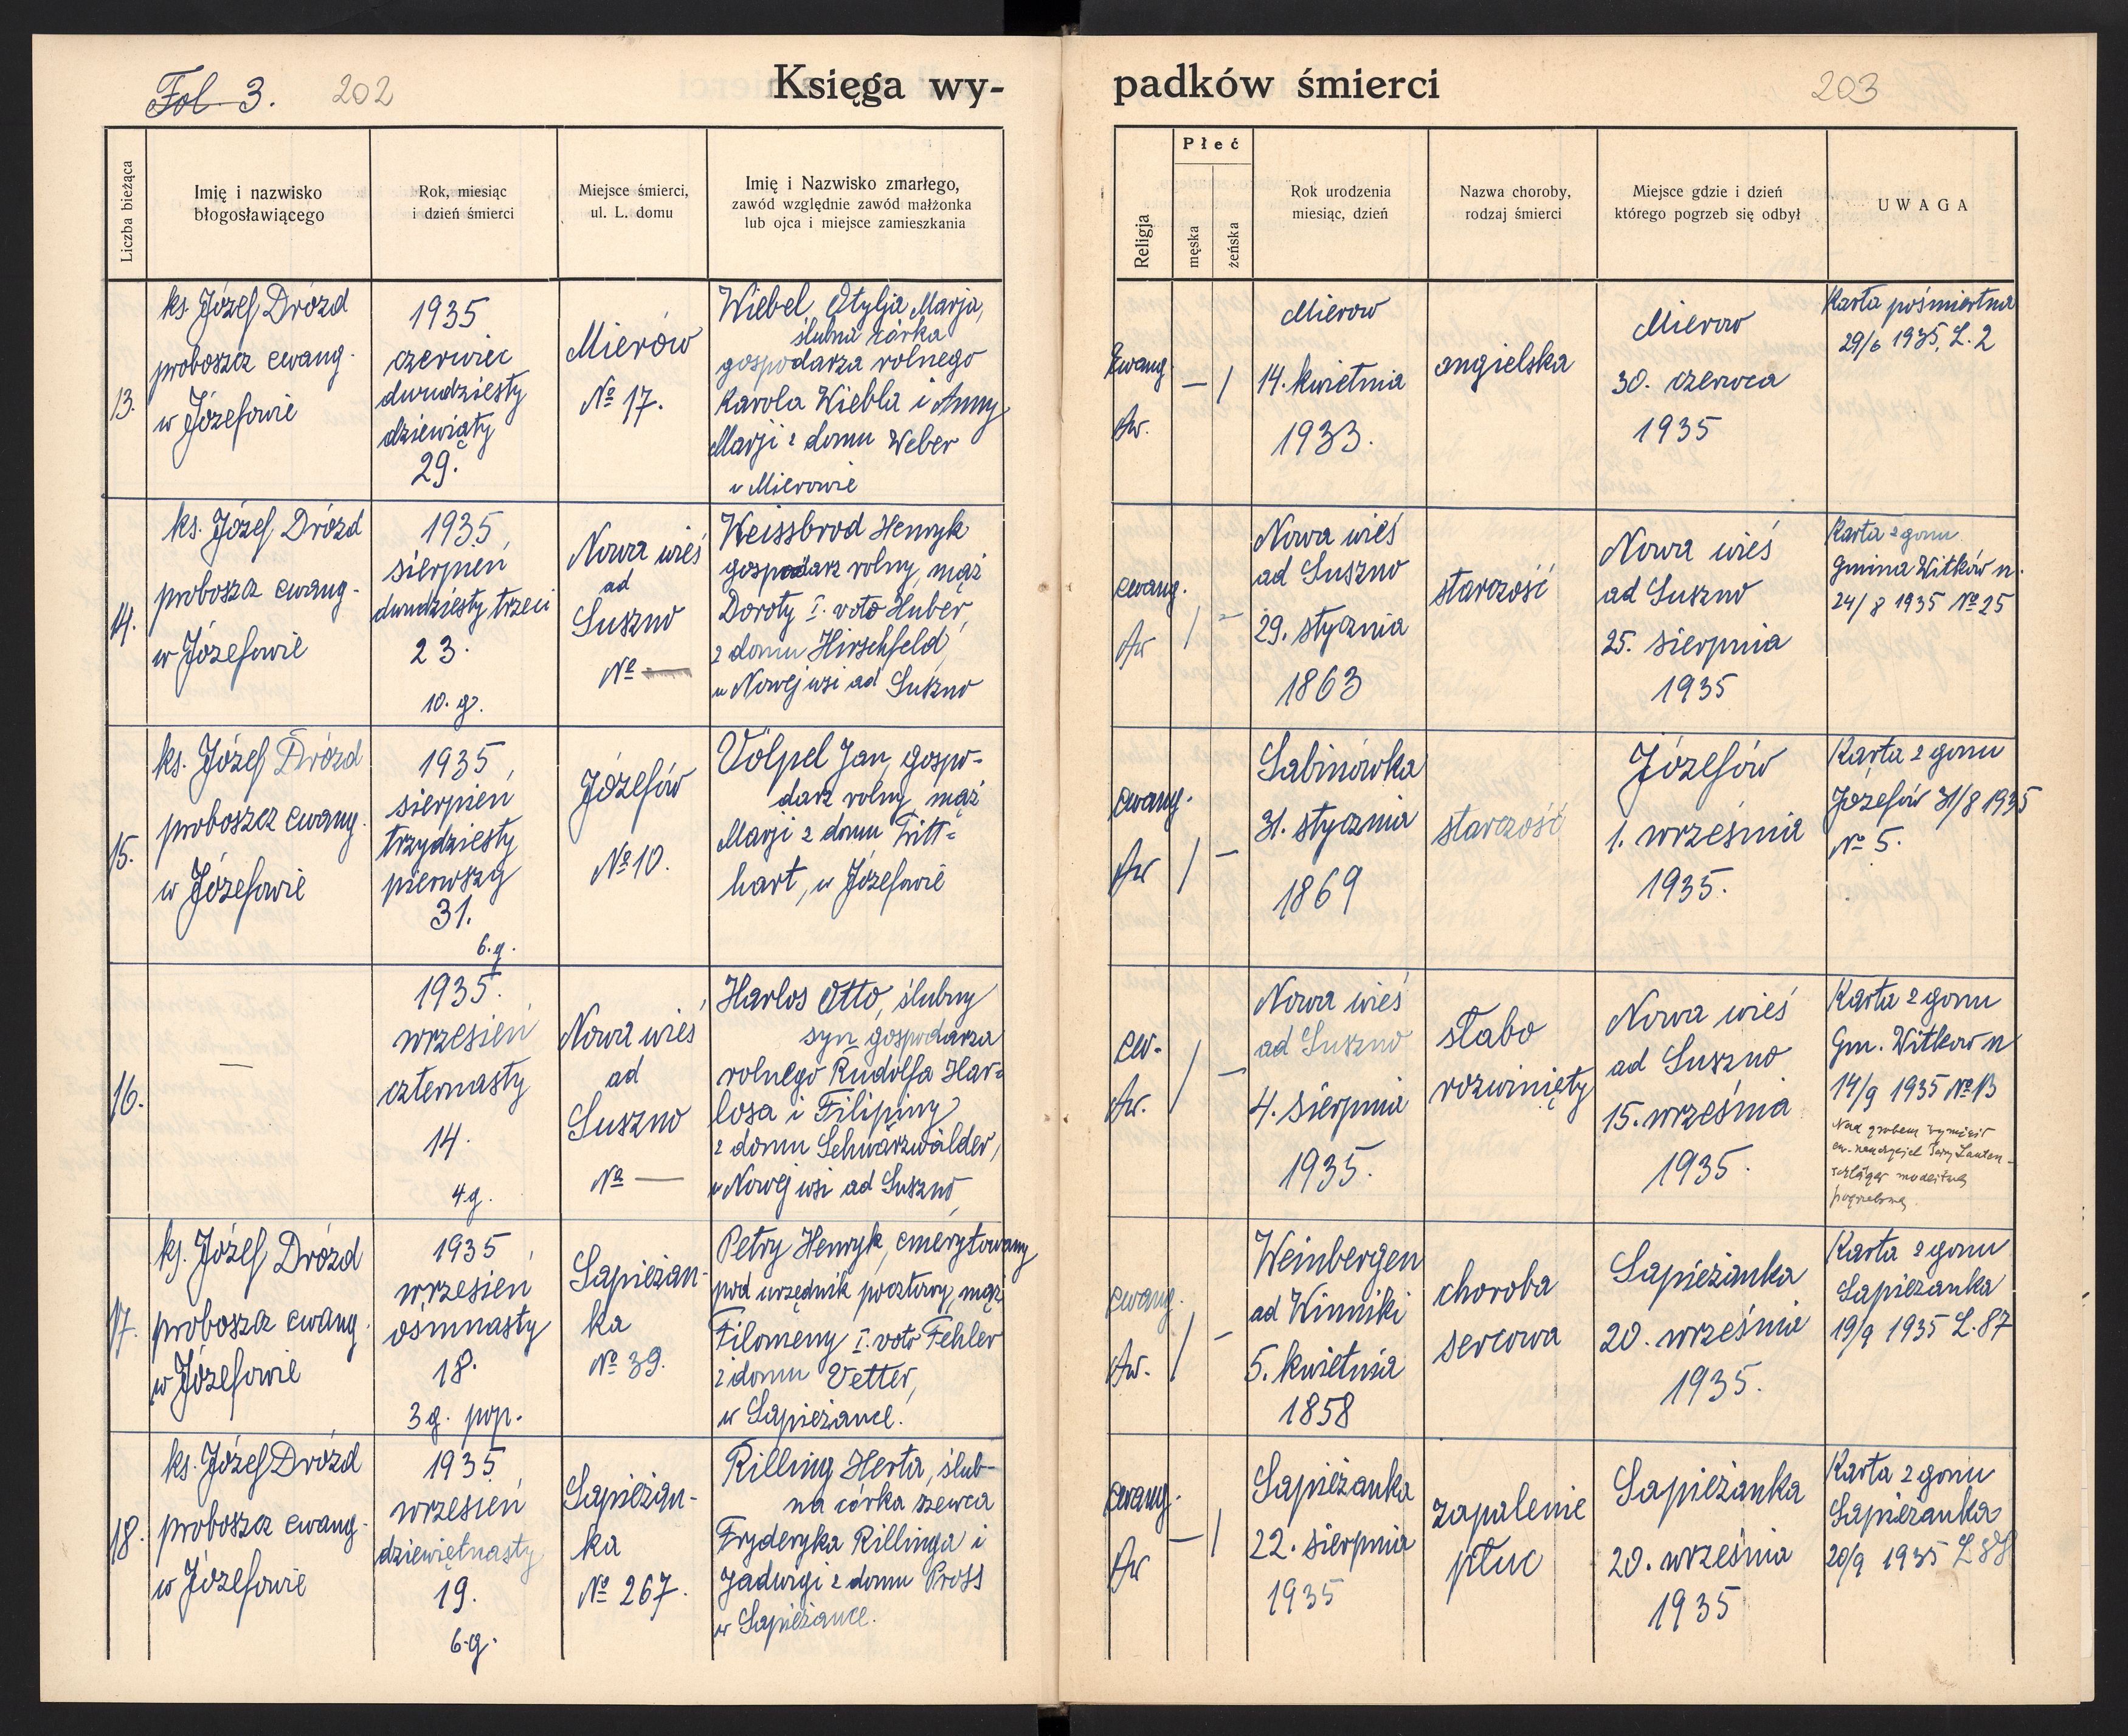 Fol 3. 202
Księga wy-
padków śmierci
203
Liczba bieżąca
Imię i nazwisko
błogosławiącego
Rok, miesiąc
i dzień śmierci
Miejsce śmierci,
ul. L. domu
Imię i Nazwisko zmarłego,
zawód względnie zawód małżonka
lub ojca i miejsce zamieszkania
Religja
Płeć
męska
żeńska
Rok urodzenia
miesiąc, dzień
Nazwa choroby,
rodzaj śmierci
Miejsce gdzie i dzień
którego pogrzeb się odbył
UWAGA
13.
ks. Józef Drózd
proboszcz ewang.
w Józefowie
1935
czerwiec
dwudziesty
dziewiąty
29.
Mierów
№ 17.
Wiebel Otylja Marja,
ślubna córka
gospodarza rolnego
Karola Wiebla i Anny
Marji z domu Weber
w Mierowie
Ewang.
Aw.
— /
Mierow
14. kwietnia
1933.
angielska
Mierow
30. czerwca
1935
Karta pośmiertna
29/6 1935, L. 2
14.
ks. Józef Drózd
proboszcz ewang.
w Józefowie
1935
sierpień
dwudziesty trzeci
23.
10. g.
Nowa wieś
ad
Suszno
№ —
Weissbrod Henryk
gospodarz rolny, mąż
Doroty I. voto Huber,
z domu Hirschfeld,
w Nowej wsi ad Suszno
ewang.
Aw
/ -
Nowa wieś
ad Suszno
29. stycznia
1863
starczość
Nowa wieś
ad Suszno
25. sierpnia
1935
Karta zgonu
Gmina Witków n.
24/8 1935 № 25
15.
ks. Józef Drózd
proboszcz ewang.
w Józefowie
1935
sierpień
trzydziesty
pierwszy
31.
6. g.
Józefów
№ 10.
Völpel Jan, gospo-
darz rolny, mąż
Marji z domu Tritt-
hart, w Józefowie
ewang.
Aw
/ —
Sabinówka
31. stycznia
1869
starczość
Józefów
1. września
1935.
Karta zgonu
Józefów 31/8 1935
№ 5.
16.
—
1935.
wrzesień
czternasty
14.
4 g.
Nowa wieś
ad
Suszno
№ —
Harlos Otto, ślubny
syn gospodarza
rolnego Rudolfa Har-
losa i Filipiny
z domu Schwarzwälder,
w Nowej wsi ad Suszno
ew.
Aw.
/ —
Nowa wieś
ad Suszno
4. sierpnia
1935.
słabo
rozwinięty
Nowa wieś
ad Suszno
15. września
1935.
Karta zgonu
Gm. Witkow n
14/9 1935 № 13
Nad grobem
ew. nauczyciel Lauten-
schläger modlitwę
pogrzebową.
17.
ks. Józef Drózd
proboszcz ewang.
w Józefowie
1935
wrzesień
osmnasty
18.
3 g. pop.
Sapieżan-
ka
№ 39.
Petry Henryk, emerytowany
pod urzędnik pocztowy, mąż
Filomeny I. voto Fehler
z domu Vetter,
w Sapieżance.
ewang.
Aw.
/ -
Weinbergen
ad Winniki
5. kwietnia
1858
choroba
sercowa
Sapieżanka
20. września
1935.
Karta zgonu
Sapieżanka
19/9 1935 L. 87
18.
ks. Józef Drózd
proboszcz ewang.
w Józefowie
1935
wrzesień
dziewiętnasty
19.
6. g.
Sapieżan-
ka
№ 267.
Rilling Herta, ślub-
na córka szewca
Fryderyka Rillinga i
Jadwigi z domu Pross
w Sapieżance.
ewang.
Aw
— /
Sapieżanka
22. sierpnia
1935
zapalenie
płuc
Sapieżanka
20. września
1935
Karta zgonu
Sapieżanka
20/9 1935 L 88